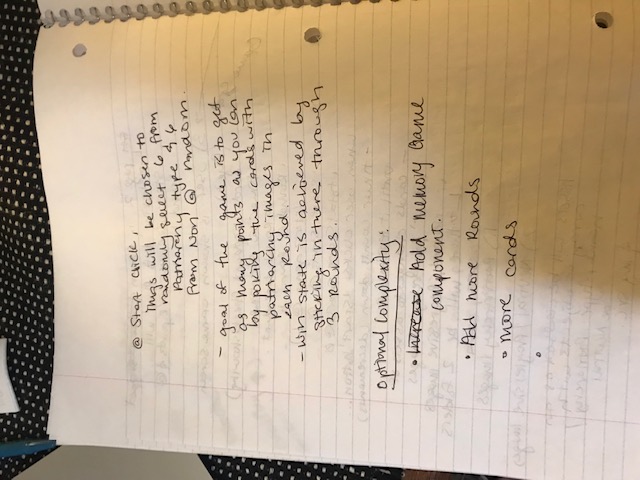 @ Start click,
imgs will be chosen to
randomly select 6 from
Patriarchy type & 6
from Non @ random.
- goal of the game is to get
as many points as you can
by poking the cards with
patriarchy images in
each round.
- win state is achieved by
sticking in there through
3 rounds.
Optional Complexity:
• Increase Add memory Game
component.
• Add more Rounds
• more cards
•